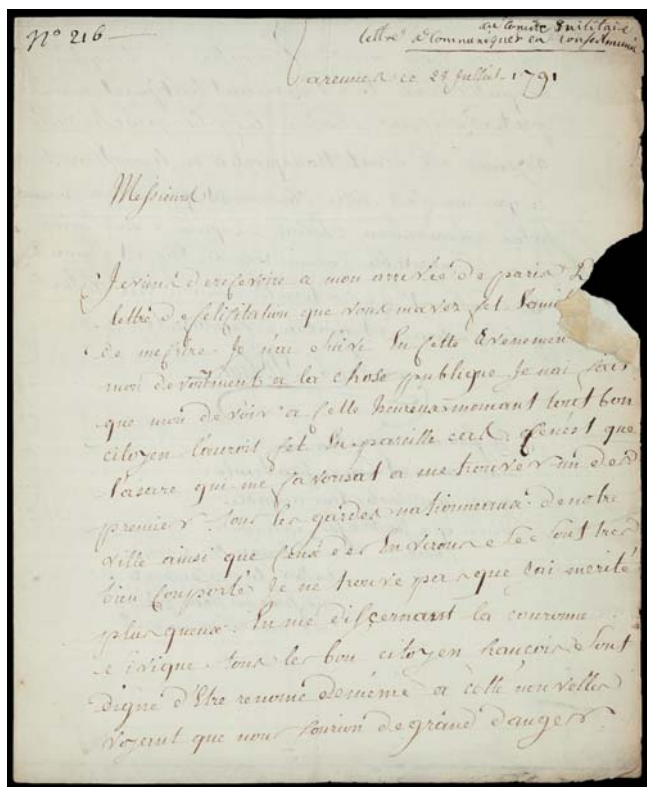 N° 216
du Comité militaire
lettre à Communiquer en
Varennes ce 28 juillet 1791
Messieurs
Je viens de resevoire a mon arrivée de paris
lettre de felisitation que vous mavez fet
de mecrire. Je n'ai suivi En cette Evenemen
mon devoument a la chose publique Je nai fais
que mon devoir a cette heureux momant tout bon
citoyen l'auroit fet En pareille cas, ce nest que
l'asare qui me favorisat a me trouver un des
premier tous les gardes nationneaux de notre
ville ainsi que ceux des Environs se sont tres
bien comporté Je ne trouve pas que j'ai merité
plus queux. En me discernant la couronne
civique tous les bon citoyen francois sont
digne d'Etre renomé de meme a cette nouvelles
voyent que nous courion de grand danger